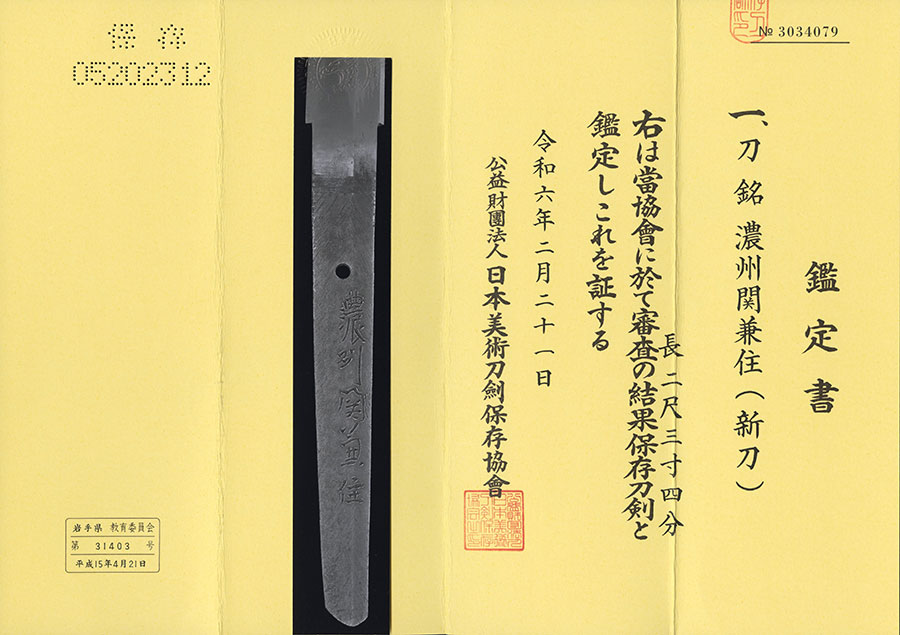 № 3034079
鑑定書
一、刀 銘 濃州関兼住(新刀)
長二尺三寸四分
右は當協會に於て審査の結果保存刀剣と
鑑定しこれを証する
令和六年二月二十一日
公益財團法人日本美術刀劍保存協會
保存
05202312
濃州関兼住
岩手県 教育委員会
第 31403 号
平成15年4月21日